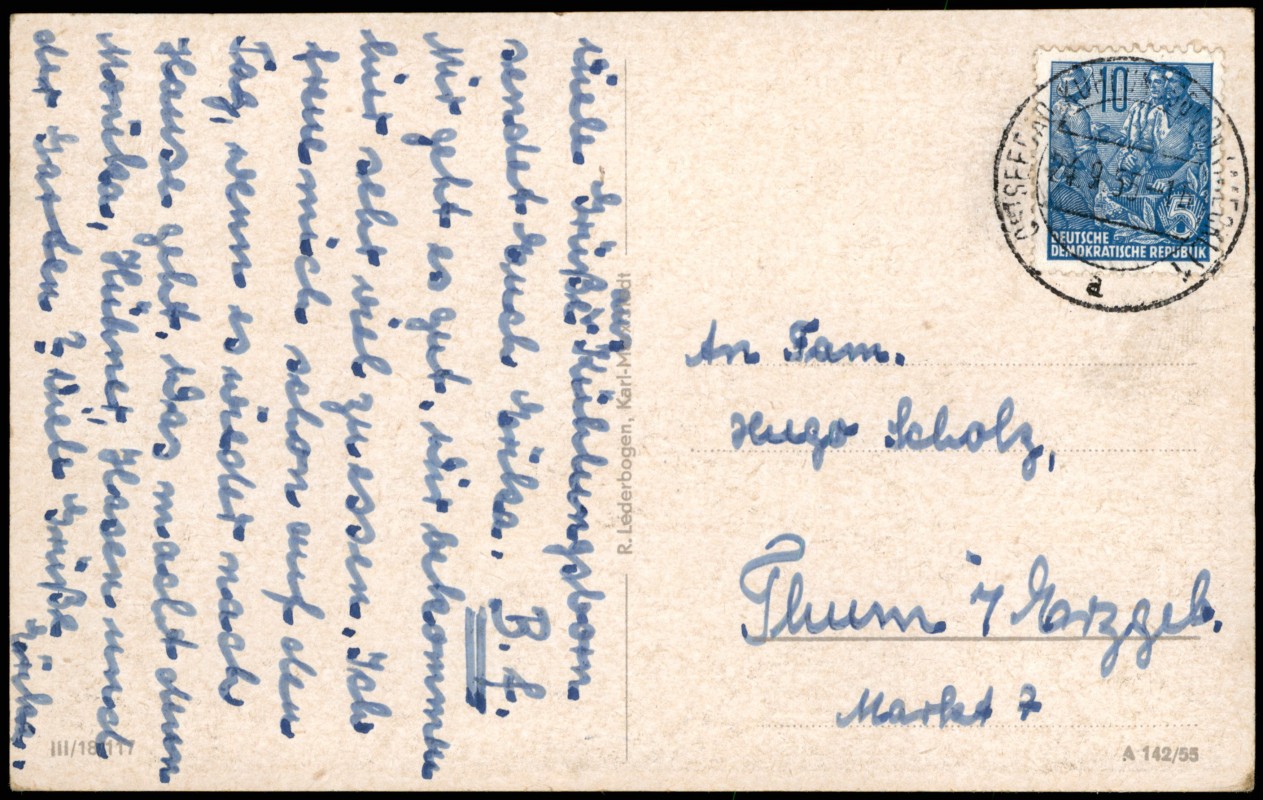 Viele Grüße aus Kühlungsborn
sendet Euch Erika. B. f.
Mir geht es gut, wir bekommen
hier sehr viel zu essen. Ich
freue mich schon auf den
Tag, wenn es wieder nach
Hause geht. Was macht denn
Monika, Hühner, Hasen und
der Garten? Viele Grüße
Erika.
R. Lederbogen, Karl-Marx-Stadt
III/18/117
10
5
DEUTSCHE
DEMOKRATISCHE REPUBLIK
OSTSEEBAD KÜHLUNGSBORN
a
An Fam.
Hugo Scholz,
Thum i/Erzgeb.
Markt 7
A 142/55